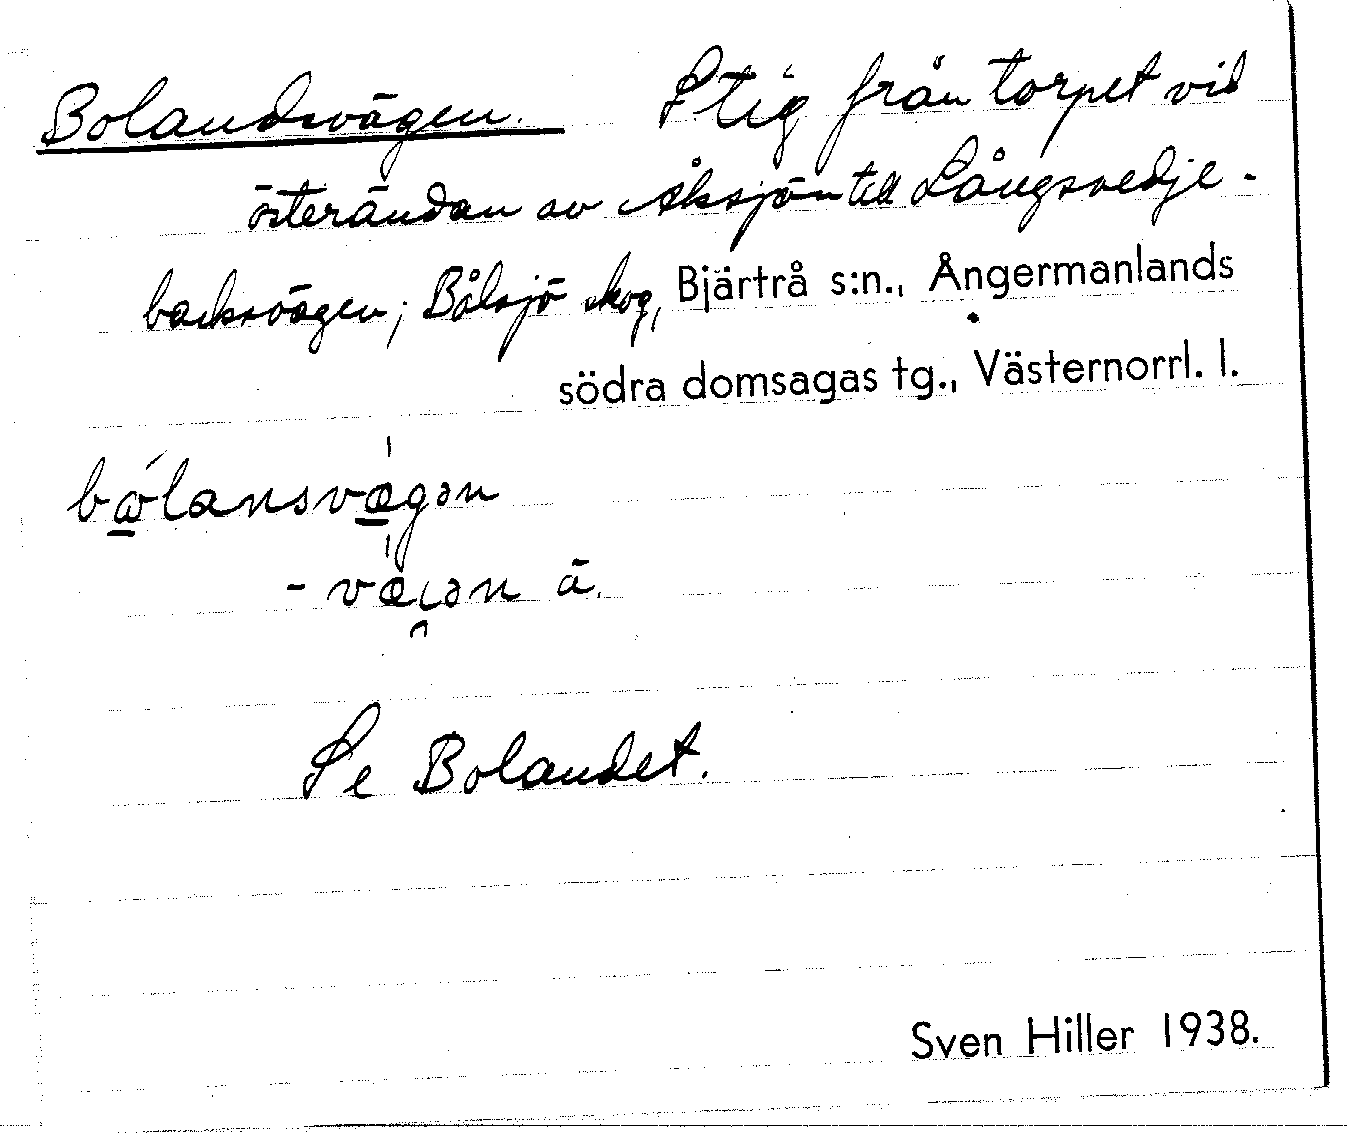 Bolandsvägen. Stig från torpet vid
österändan av Åksjön till Långsvedje-
backsvägen; Bålsjö skog, Bjärtrå s:n., Ångermanlands
södra domsagas tg., Västernorrl. l.
bώ̲lansvæ̲gən
- væɩ̯ən ä.
Se Bolandet.
Sven Hiller 1938.